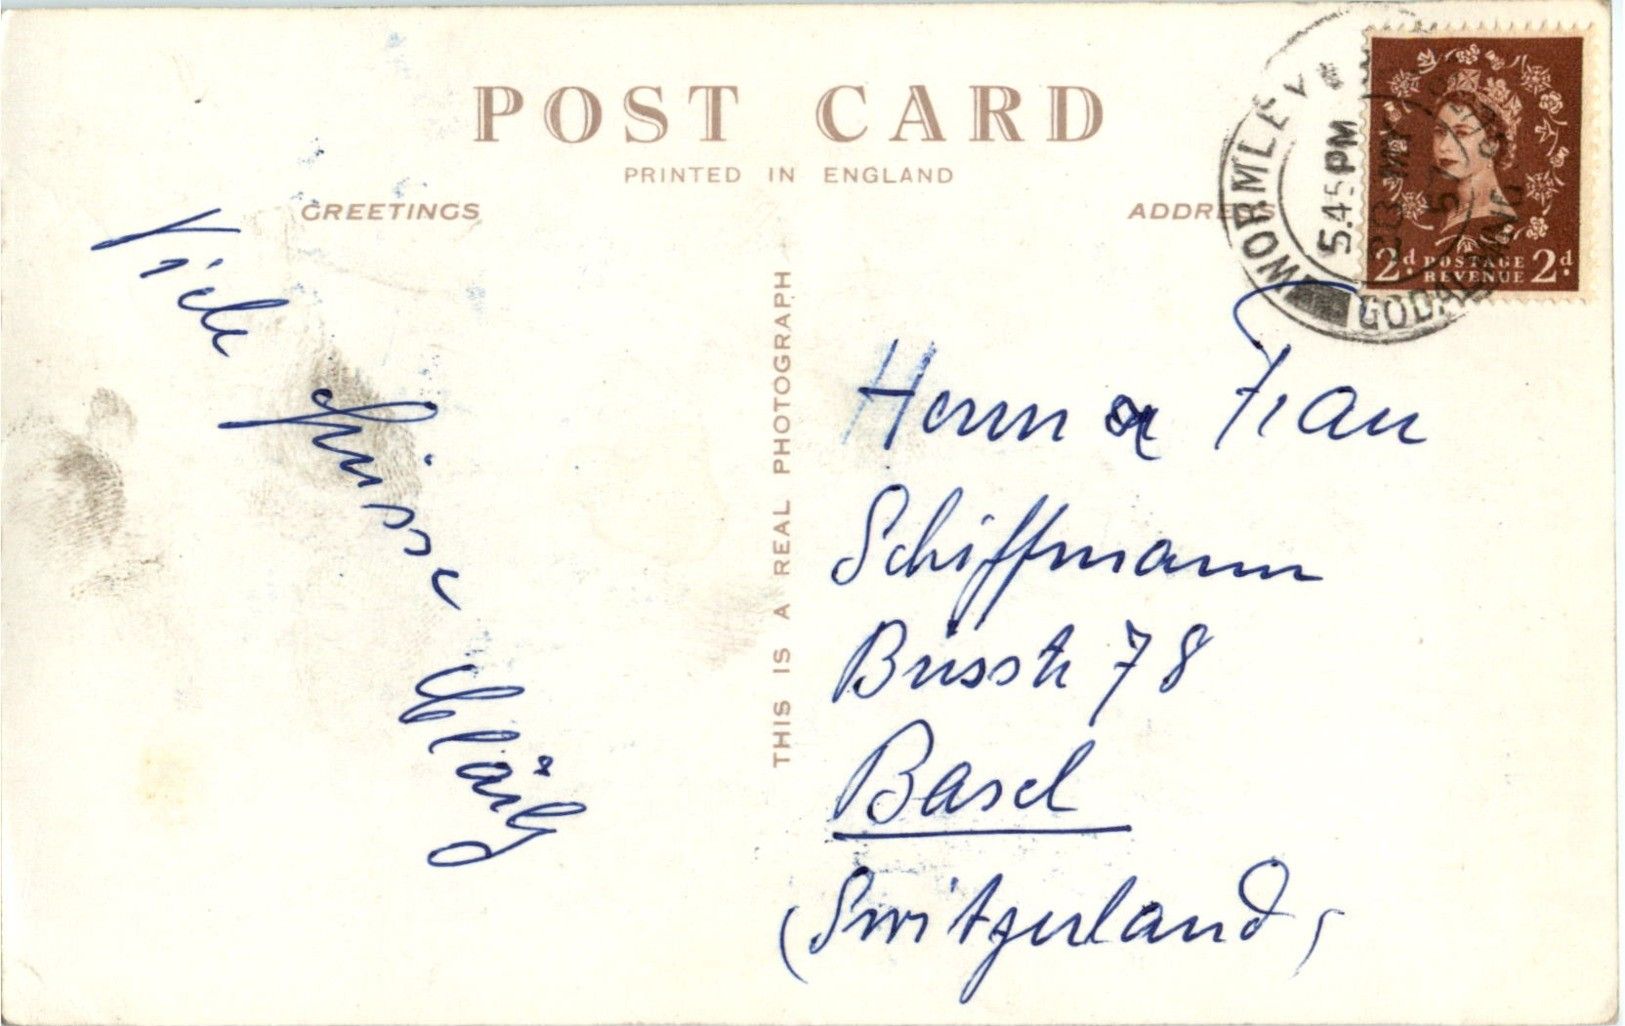 POST CARD
PRINTED IN ENGLAND
GREETINGS
ADDRE
WORMLEY
5.45 PM
28 MY
GODALMING
2d POSTAGE 2d
REVENUE
THIS IS A REAL PHOTOGRAPH
Viele
Grüsse
Herrn & Frau
Schiffmann
78
Basel
(Switzerland)